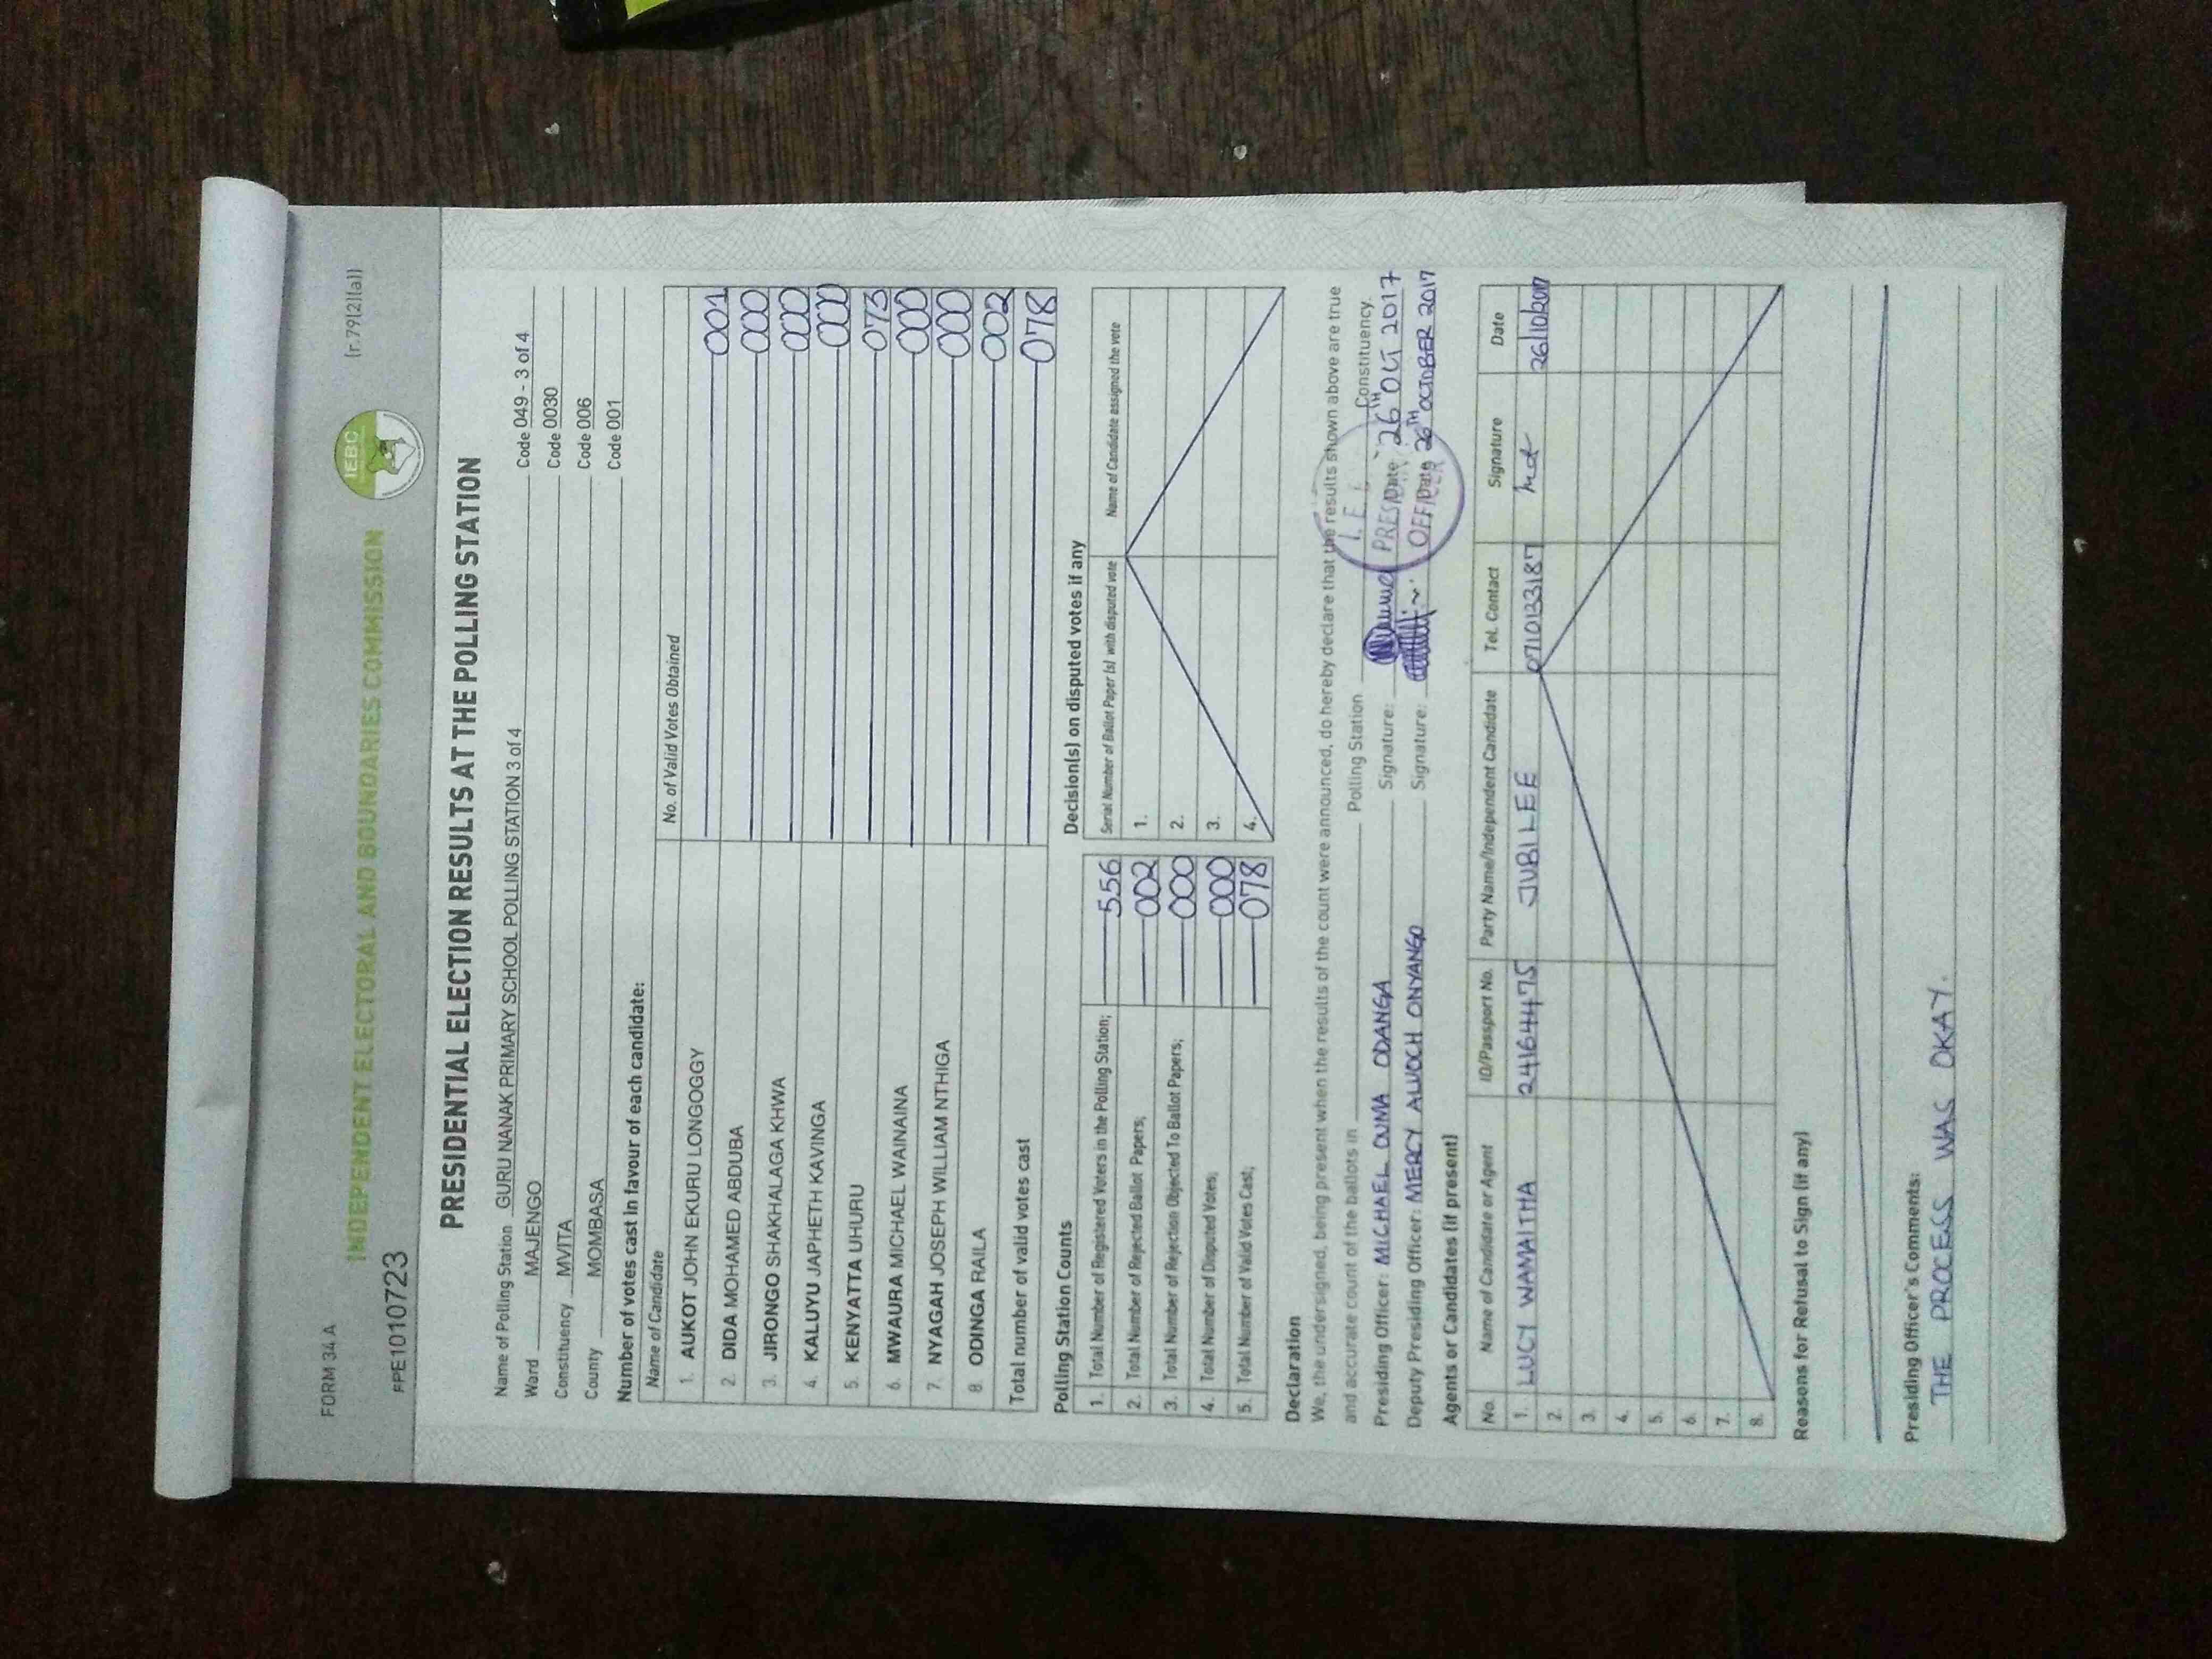 FORM 34 A
(r.79(2)(a))
IEBC
INDEPENDENT ELECTORAL AND BOUNDARIES COMMISSION
PPE1010723
PRESIDENTIAL ELECTION RESULTS AT THE POLLING STATION
Name of Polling Station GURU NANAK PRIMARY SCHOOL POLLING STATION 3 of 4 Code 049 - 3 of 4
Ward MAJENGO Code 0030
Constituency MVITA Code 006
County MOMBASA Code 001
Number of votes cast in favour of each candidate:
Name of Candidate No. of Valid Votes Obtained
1. AUKOT JOHN EKURU LONGOGGY 001
2. DIDA MOHAMED ABDUBA 000
3. JIRONGO SHAKHALAGA KHWA 000
4. KALUYU JAPHETH KAVINGA 000
5. KENYATTA UHURU 073
6. MWAURA MICHAEL WAINAINA 000
7. NYAGAH JOSEPH WILLIAM NTHIGA 000
8. ODINGA RAILA 002
Total number of valid votes cast 078
Polling Station Counts
1. Total Number of Registered Voters in the Polling Station; 556
2. Total Number of Rejected Ballot Papers; 002
3. Total Number of Rejection Objected To Ballot Papers; 000
4. Total Number of Disputed Votes; 000
5. Total Number of Valid Votes Cast; 078
Decision(s) on disputed votes if any
Serial Number of Ballot Paper (s) with disputed vote Name of Candidate assigned the vote
1.
2.
3.
4.
Declaration
We, the undersigned, being present when the results of the count were announced, do hereby declare that the results shown above are true
and accurate count of the ballots in Polling Station Constituency.
Presiding Officer: MICHAEL OUMA ODANGA Signature: Date 26TH OCT 2017
Deputy Presiding Officer: MERCY ALUOCH ONYANGO Signature: Date 26TH OCTOBER 2017
Agents or Candidates (if present)
No. Name of Candidate or Agent ID/Passport No. Party Name/Independent Candidate Tel. Contact Signature Date
1. LUCY WAMAITHA 24164475 JUBILEE 0710133187 26/10/2017
2.
3.
4.
5.
6.
7.
8.
Reasons for Refusal to Sign (if any)
Presiding Officer's Comments:
THE PROCESS WAS OKAY.